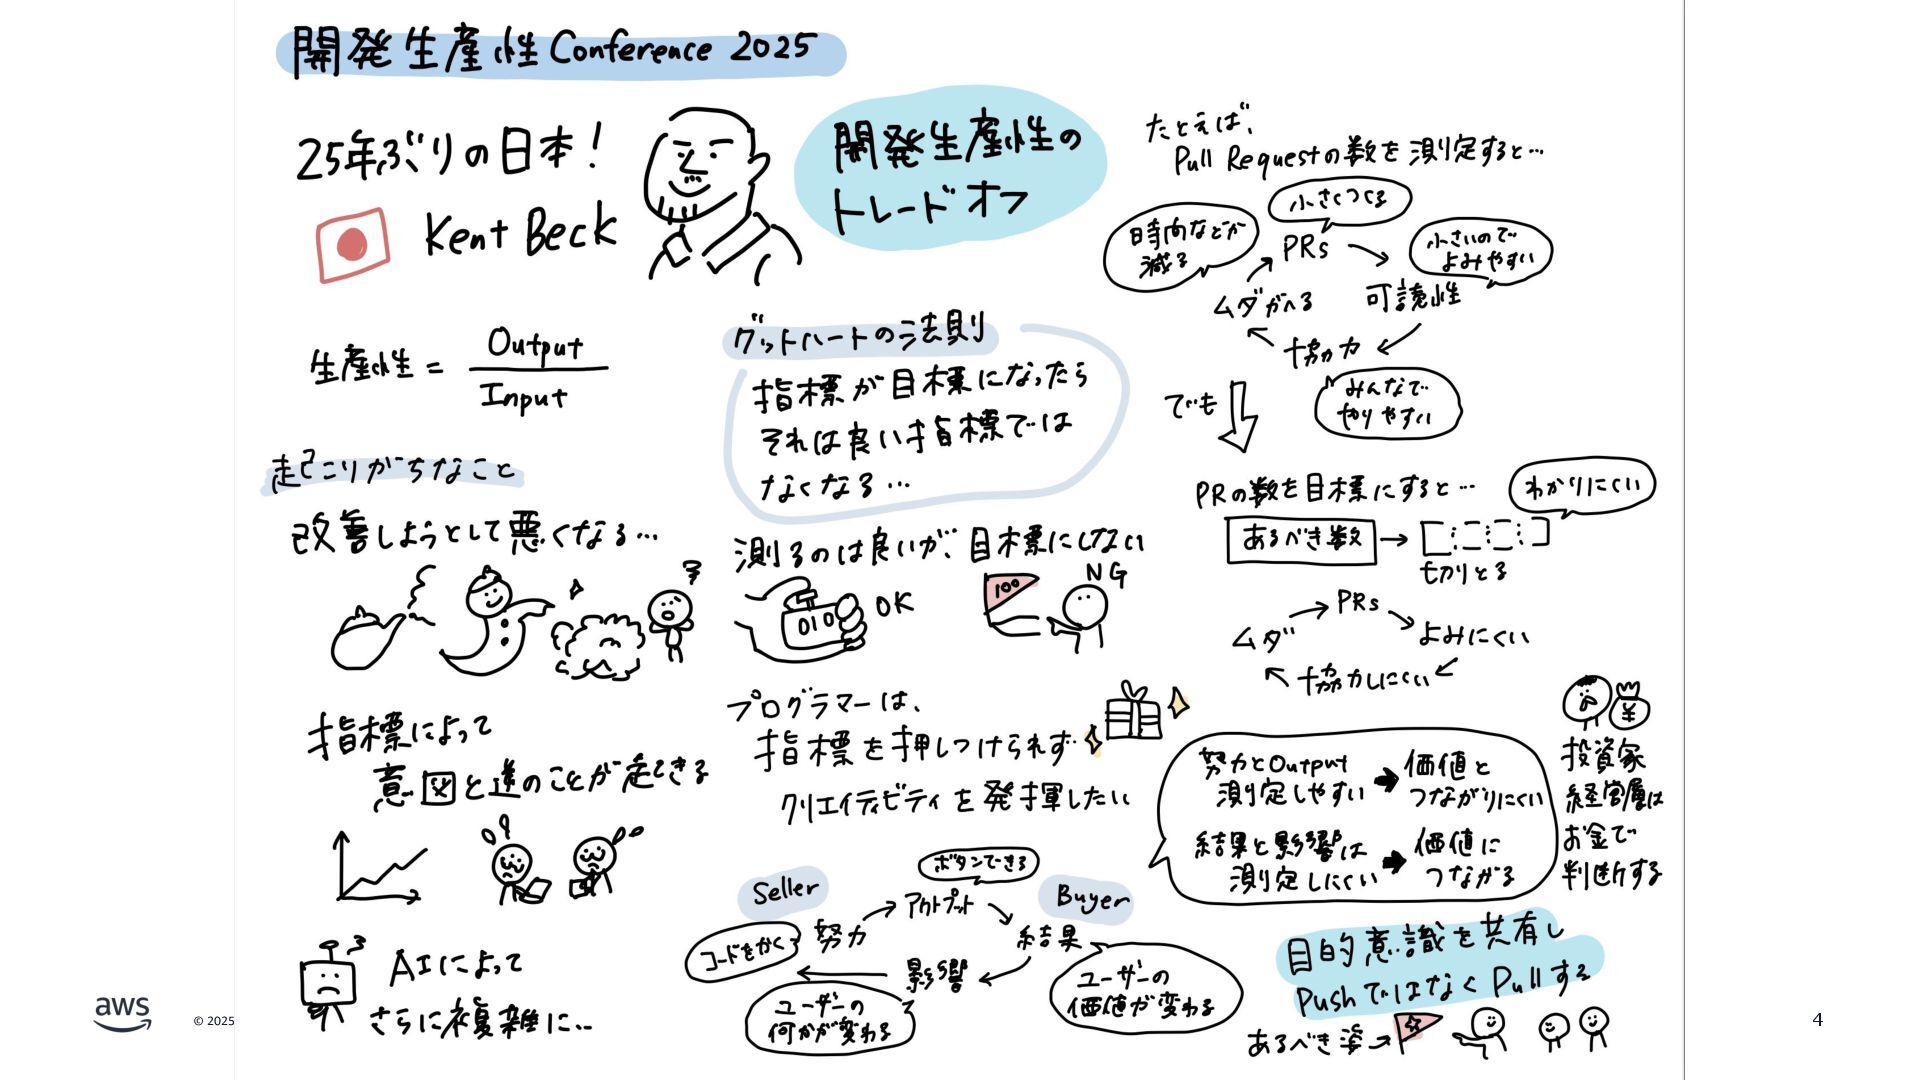 開発生産性Conference 2025
25年ぶりの日本!
Kent Beck
開発生産性の
トレードオフ
生産性 = Output
Input
起こりがちなこと
改善しようとして悪くなる…
指標によって
意図と逆のことが起きる
AIによって
さらに複雑に…
グットハートの法則
指標が目標になったら
それは良い指標では
なくなる…
測るのは良いが、目標にしない
010
OK
100
NG
プログラマーは、
指標を押しつけられず
クリエイティビティを発揮したい
Seller
ボタンできる
Buyer
コードをかく
努力
アウトプット
結果
影響
ユーザーの
何かが変わる
ユーザーの
価値が変わる
たとえば、
Pull Requestの数を測定すると…
小さくつくる
時間などが
減る
PRs
小さいので
よみやすい
ムダがへる
可読性
協力
みんなで
やりやすい
でも
PRの数を目標にすると…
わかりにくい
あるべき数
切りとる
PRs
ムダ
よみにくい
協力しにくい
努力とOutput
測定しやすい
価値と
つながりにくい
結果と影響は
測定しにくい
価値に
つながる
¥
投資家
経営層は
お金で
判断する
目的意識を共有し
PushではなくPullする
あるべき姿
aws
© 2025
4